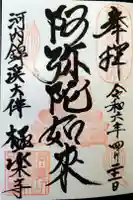 奉拝
令和六年四月二十二日
阿弥陀如来
河内錦渓大伴
極楽寺